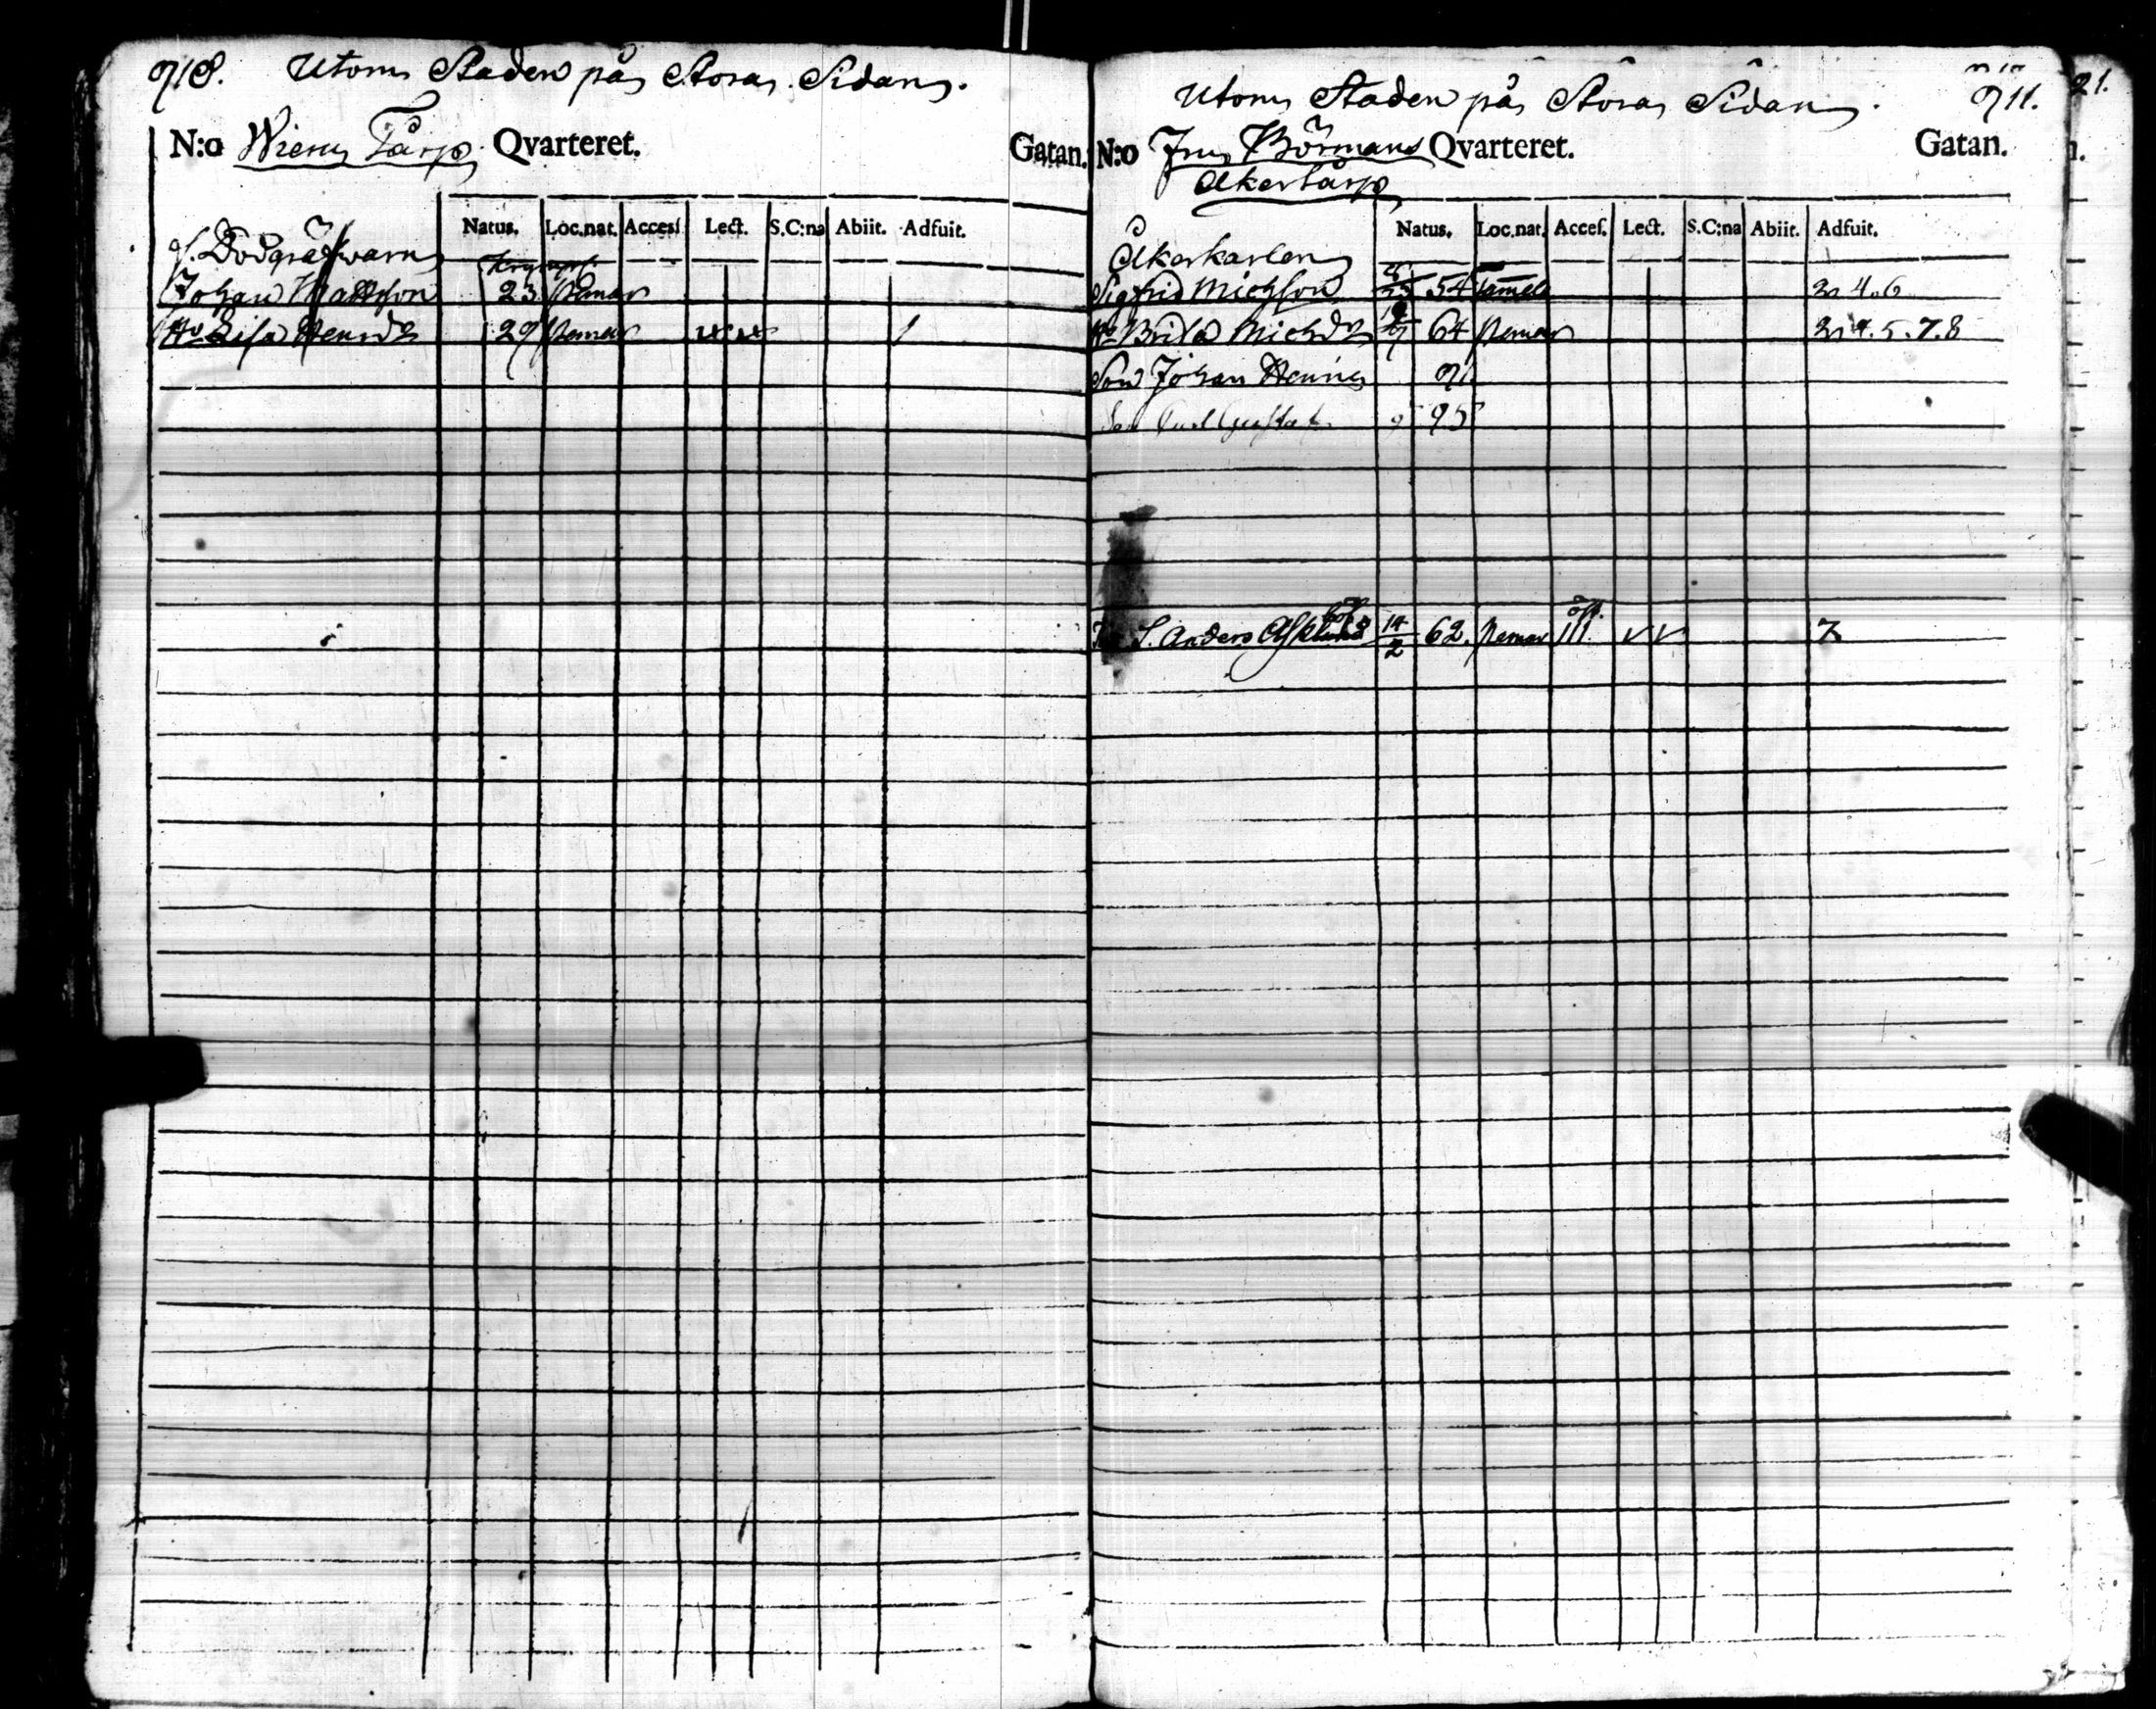 Utom Staden på Stora Sidan.
N:o Wiens Tårp Qvarteret. Gatan.
Natus. Loc.nat. Access. Lect. S.C:na Abiit. Adfuit.
f. Dödgräfvaren
Johan Mattsson 23. Pemar
H:u Lisa Henrsdr 29 Pemar 1
Utom Staden på Stora Sidan. 711.
N:o Fru Börmans Qvarteret. Gatan.
Åkertårp
Natus. Loc.nat. Acces. Lect. S.C:na Abiit. Adfuit.
Åkerkarlen
Sigfrid Michson 54 3. 4. 6
H:u Brita Michsdr 64 Pemar 3. 4. 5. 7. 8
Son Johan Henric 91.
Son Carl Gustaf 95
S. Anders 14/2 62. Pemar 7
21.